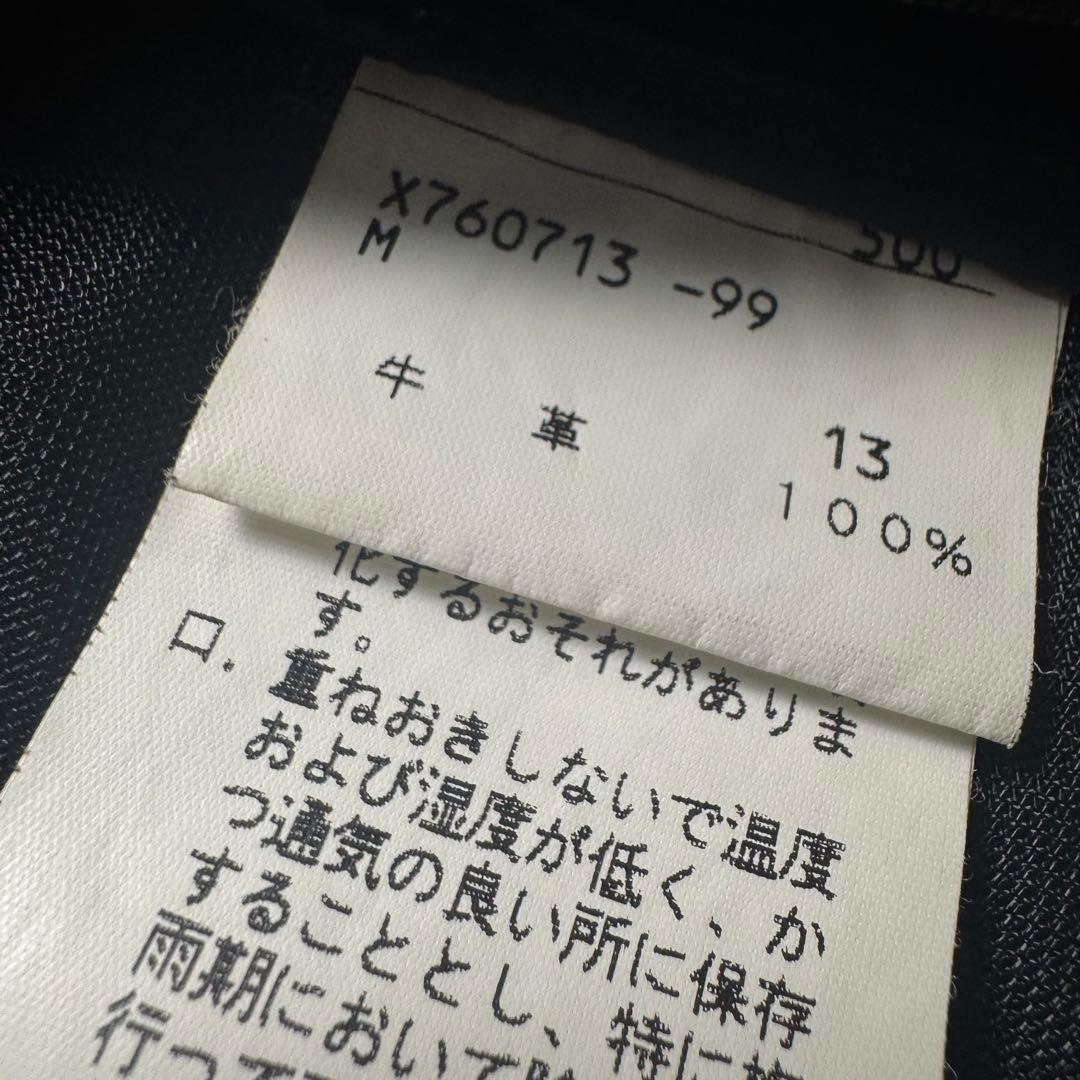 500
X760713 -99
M
牛 革 13
100%
化するおそれがありま
す。
ロ. 重ねおきしないで温度
および湿度が低く、か
つ通気の良い所に保存
することとし、特に
雨期において
行って